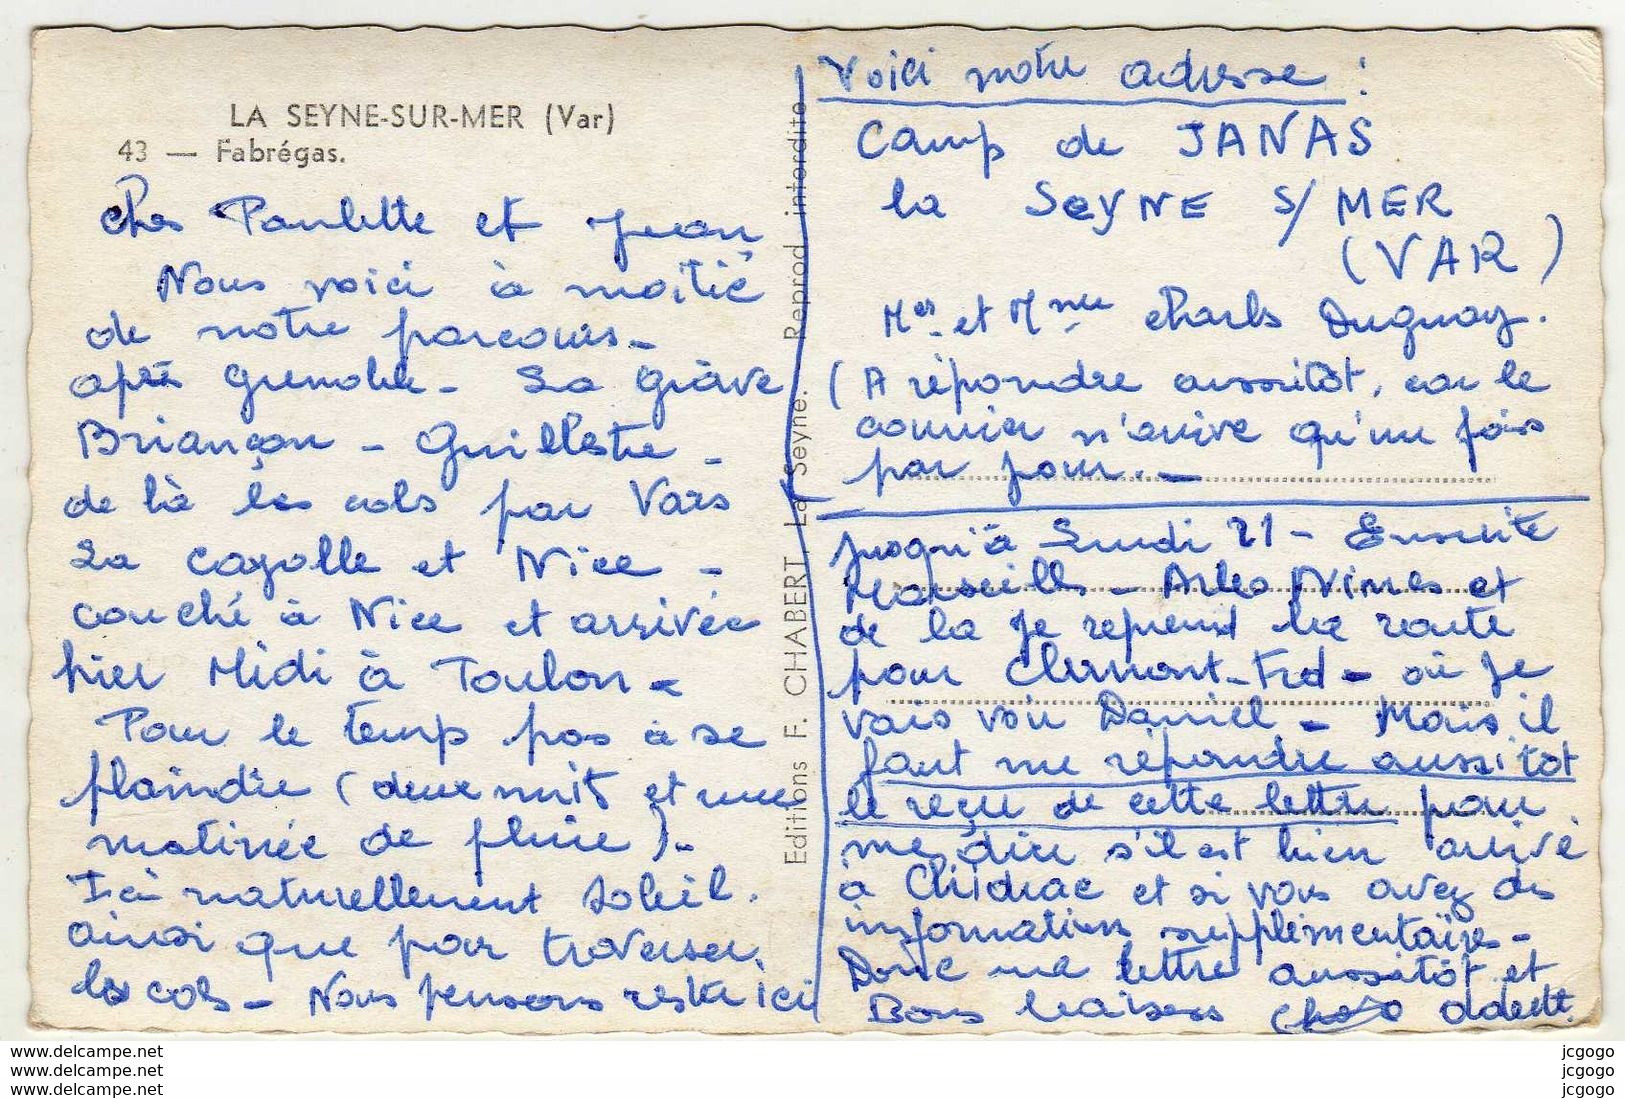 LA SEYNE-SUR-MER (Var)
43 — Fabrégas.
Chers Paulette et Jean,
Nous voici à moitié
de notre parcours -
après Grenoble - La Grave
Briançon - Guillestre -
de là les cols par Vars
La Cayolle et Nice -
couché à Nice et arrivée
hier Midi à Toulon -
Pour le temps pas à se
plaindre (deux nuits et une
matinée de pluie) -
Ici naturellement soleil.
ainsi que pour traverser
les cols - Nous pensons rester ici
Editions F. CHABERT, La Seyne. Reprod. interdite
Voici notre adresse :
Camp de JANAS
la SEYNE S/ MER
(VAR)
Mer et Mme Charles Duguay.
(A répondre aussitôt, car le
courrier n'arrive qu'une fois
par jour. -
jusqu'à Lundi 21 - Ensuite
Marseille - Arles Nimes et
de la je reprend la route
pour Clermont-Frd - où je
vais voir Daniel - Mais il
faut me répondre aussitôt
le reçu de cette lettre pour
me dire s'il est bien arrivé
à Chidrac et si vous avez des
informations supplémentaires -
Donc une lettre aussitôt et
Bons baisers Odette
www.delcampe.net
www.delcampe.net
www.delcampe.net
jcgogo
jcgogo
jcgogo